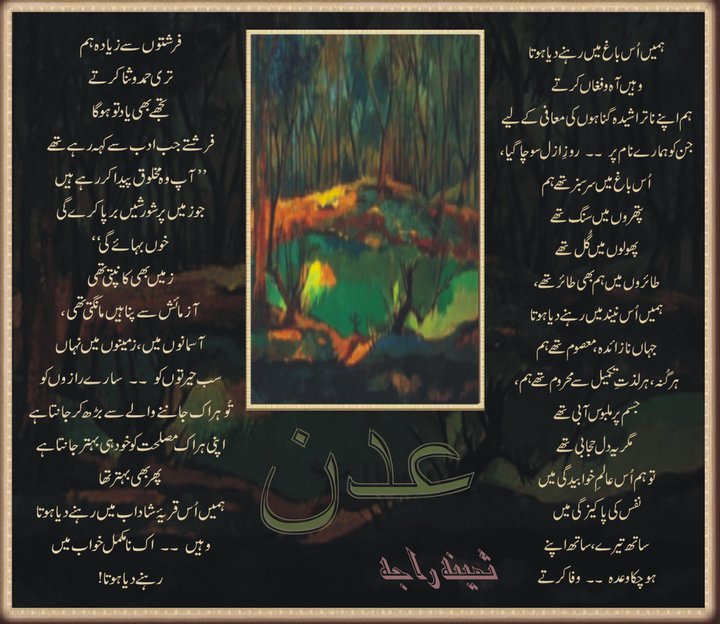 عدن
ثمینہ راجہ
ہمیں اُس باغ میں رہنے دیا ہوتا
وہیں آہ و فغاں کرتے
ہم اپنے ناتراشیدہ گناہوں کی معافی کے لیے
جن کو ہمارے نام پر ۔۔ روزِ ازل سوچا گیا،
اُس باغ میں سرسبز تھے ہم
پتھروں میں سنگ تھے
پھولوں میں گُل تھے
طائروں میں ہم بھی طائر تھے،
ہمیں اُس نیند میں رہنے دیا ہوتا
جہاں نازائدہ، معصوم تھے ہم
ہر گُنہ، ہر لذتِ تکمیل سے محروم تھے ہم،
جسم پر ملبوس آبی تھے
مگر یہ دل حجابی تھے
تو ہم اُس عالمِ خوابیدگی میں
نفس کی پاکیزگی میں
ساتھ تیرے، ساتھ اپنے
ہو چکا وعدہ ۔۔ وفا کرتے
فرشتوں سے زیادہ ہم
تری حمد و ثنا کرتے
تجھے بھی یاد تو ہوگا
فرشتے جب ادب سے کہہ رہے تھے
”آپ وہ مخلوق پیدا کر رہے ہیں
جو زمیں پر شورشیں برپا کرے گی
خوں بہائے گی“
زمیں بھی کانپتی تھی
آزمائش سے پناہیں مانگتی تھی،
آسمانوں میں، زمینوں میں نہاں
سب حیرتوں کو ۔۔ سارے رازوں کو
تُو ہر اک جاننے والے سے بڑھ کر جانتا ہے
اپنی ہر اک مصلحت کو خود ہی بہتر جانتا ہے
پھر بھی بہتر تھا
ہمیں اُس قریۂ شاداب میں رہنے دیا ہوتا
وہیں ۔۔ اک نامکمل خواب میں
رہنے دیا ہوتا!